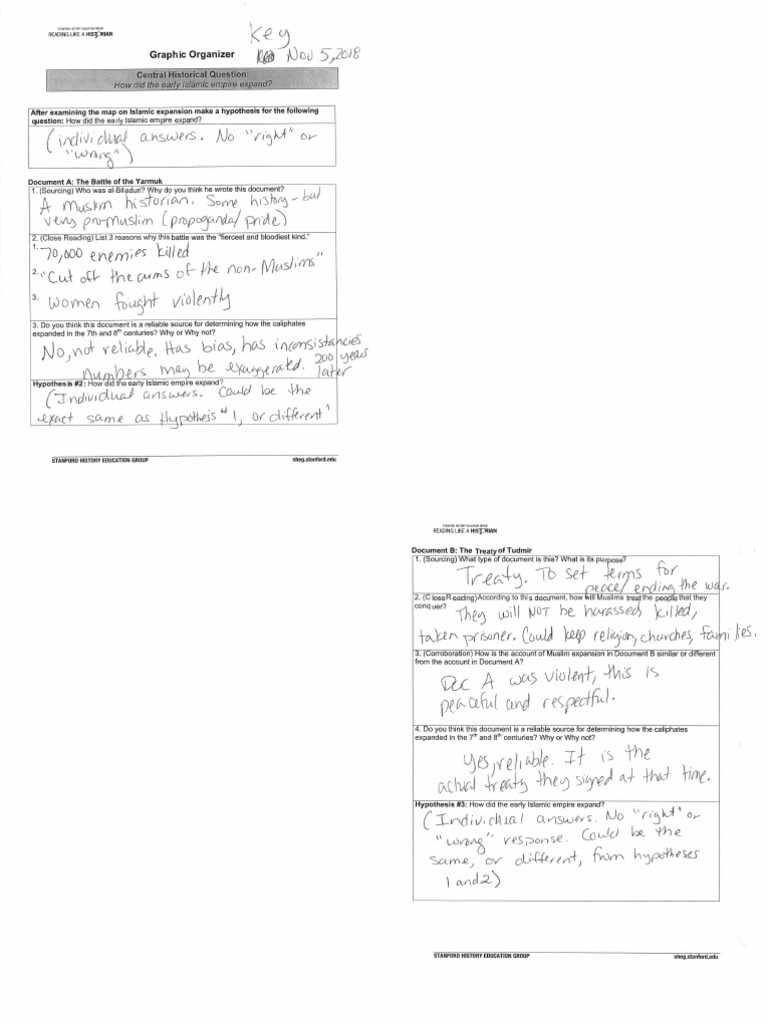 STANFORD HISTORY EDUCATION GROUP
READING LIKE A HISTORIAN
Key
Graphic Organizer
Nov 5, 2018
Central Historical Question:
How did the early Islamic empire expand?
After examining the map on Islamic expansion make a hypothesis for the following
question: How did the early Islamic empire expand?
(individual answers. No "right" or
"wrong")
Document A: The Battle of the Yarmuk
1. (Sourcing) Who was al-Biladuri? Why do you think he wrote this document?
A Muslim historian. Some history - but
very pro-muslim (propoganda/pride)
2. (Close Reading) List 3 reasons why this battle was the "fiercest and bloodiest kind."
1. 70,000 enemies killed
2. "Cut off the arms of the non-Muslims"
3. women fought violently
3. Do you think this document is a reliable source for determining how the caliphates
expanded in the 7th and 8th centuries? Why or Why not?
No, not reliable. Has bias, has inconsistancies
Numbers may be exaggerated. 200 years
later
Hypothesis #2: How did the early Islamic empire expand?
(Individual answers. Could be the
exact same as Hypothesis #1, or different"
STANFORD HISTORY EDUCATION GROUP sheg.stanford.edu
STANFORD HISTORY EDUCATION GROUP
READING LIKE A HISTORIAN
Document B: The Treaty of Tudmir
1. (Sourcing) What type of document is this? What is its purpose?
Treaty. To set terms for
peace/ending the war.
2. (Close Reading)According to this document, how will Muslims treat the people that they
conquer?
They will NOT be harassed, killed,
taken prisoner. Could keep religion, churches, families.
3. (Corroboration) How is the account of Muslim expansion in Document B similar or different
from the account in Document A?
Doc A was violent, this is
peaceful and respectful.
4. Do you think this document is a reliable source for determining how the caliphates
expanded in the 7th and 8th centuries? Why or Why not?
Yes, reliable. It is the
actual treaty they signed at that time.
Hypothesis #3: How did the early Islamic empire expand?
(Individual answers. No "right" or
"wrong" response. Could be the
same, or different, from hypotheses
1 and 2)
STANFORD HISTORY EDUCATION GROUP sheg.stanford.edu